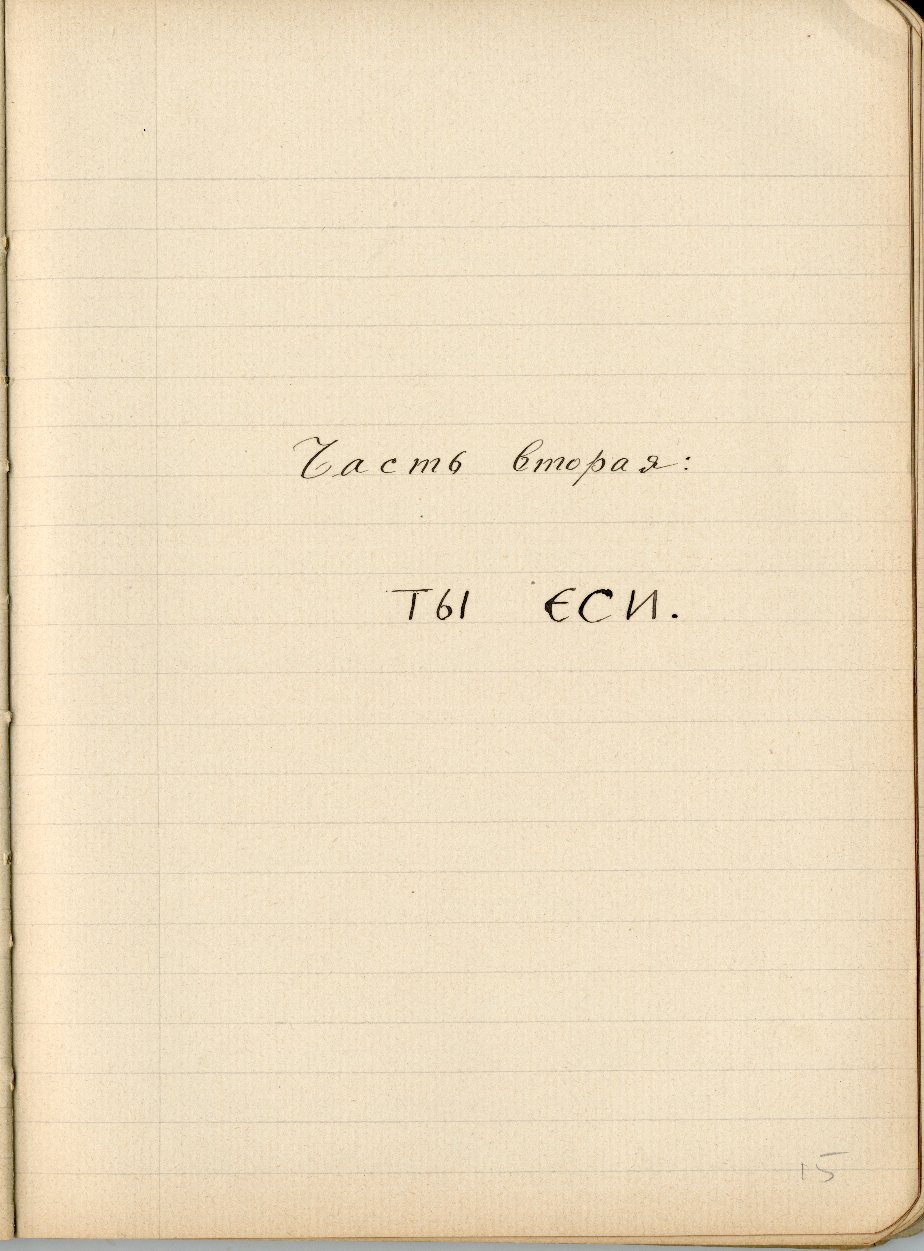 Часть вторая:
ТЫ ЄСИ.
15